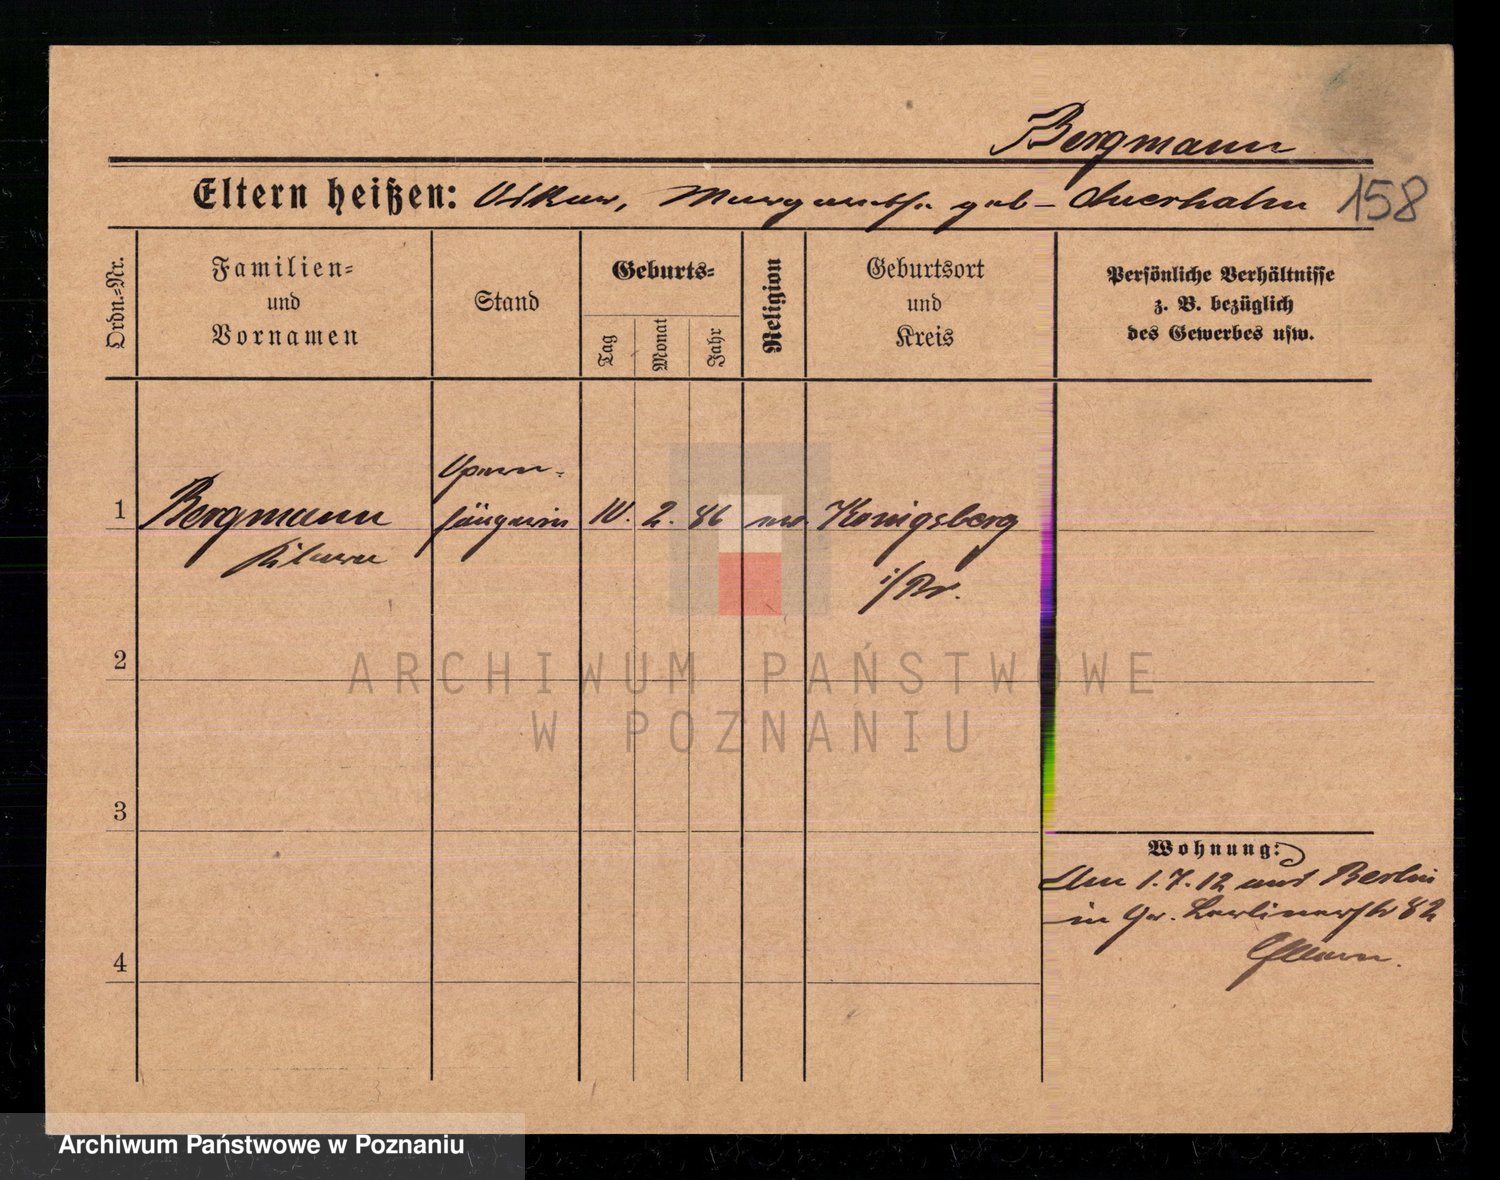 Bergmann
Eltern heißen: Oskar, Margarethe geb. Auerhahn
158
Ordn.-Nr.
Familien-
und
Vornamen
Stand
Geburts-
Tag
Monat
Jahr
Religion
Geburtsort
und
Kreis
Persönliche Verhältnisse
z. B. bezüglich
des Gewerbes usw.
Opern-
1 Bergmann sängerin 10. 2. 86 Königsberg
i/Pr.
2
ARCHIWUM PAŃSTWOWE
W POZNANIU
3
Wohnung:
Am 1.7.12 aus Berlin
in Gr. Berlinerstr 82
4
Archiwum Państwowe w Poznaniu